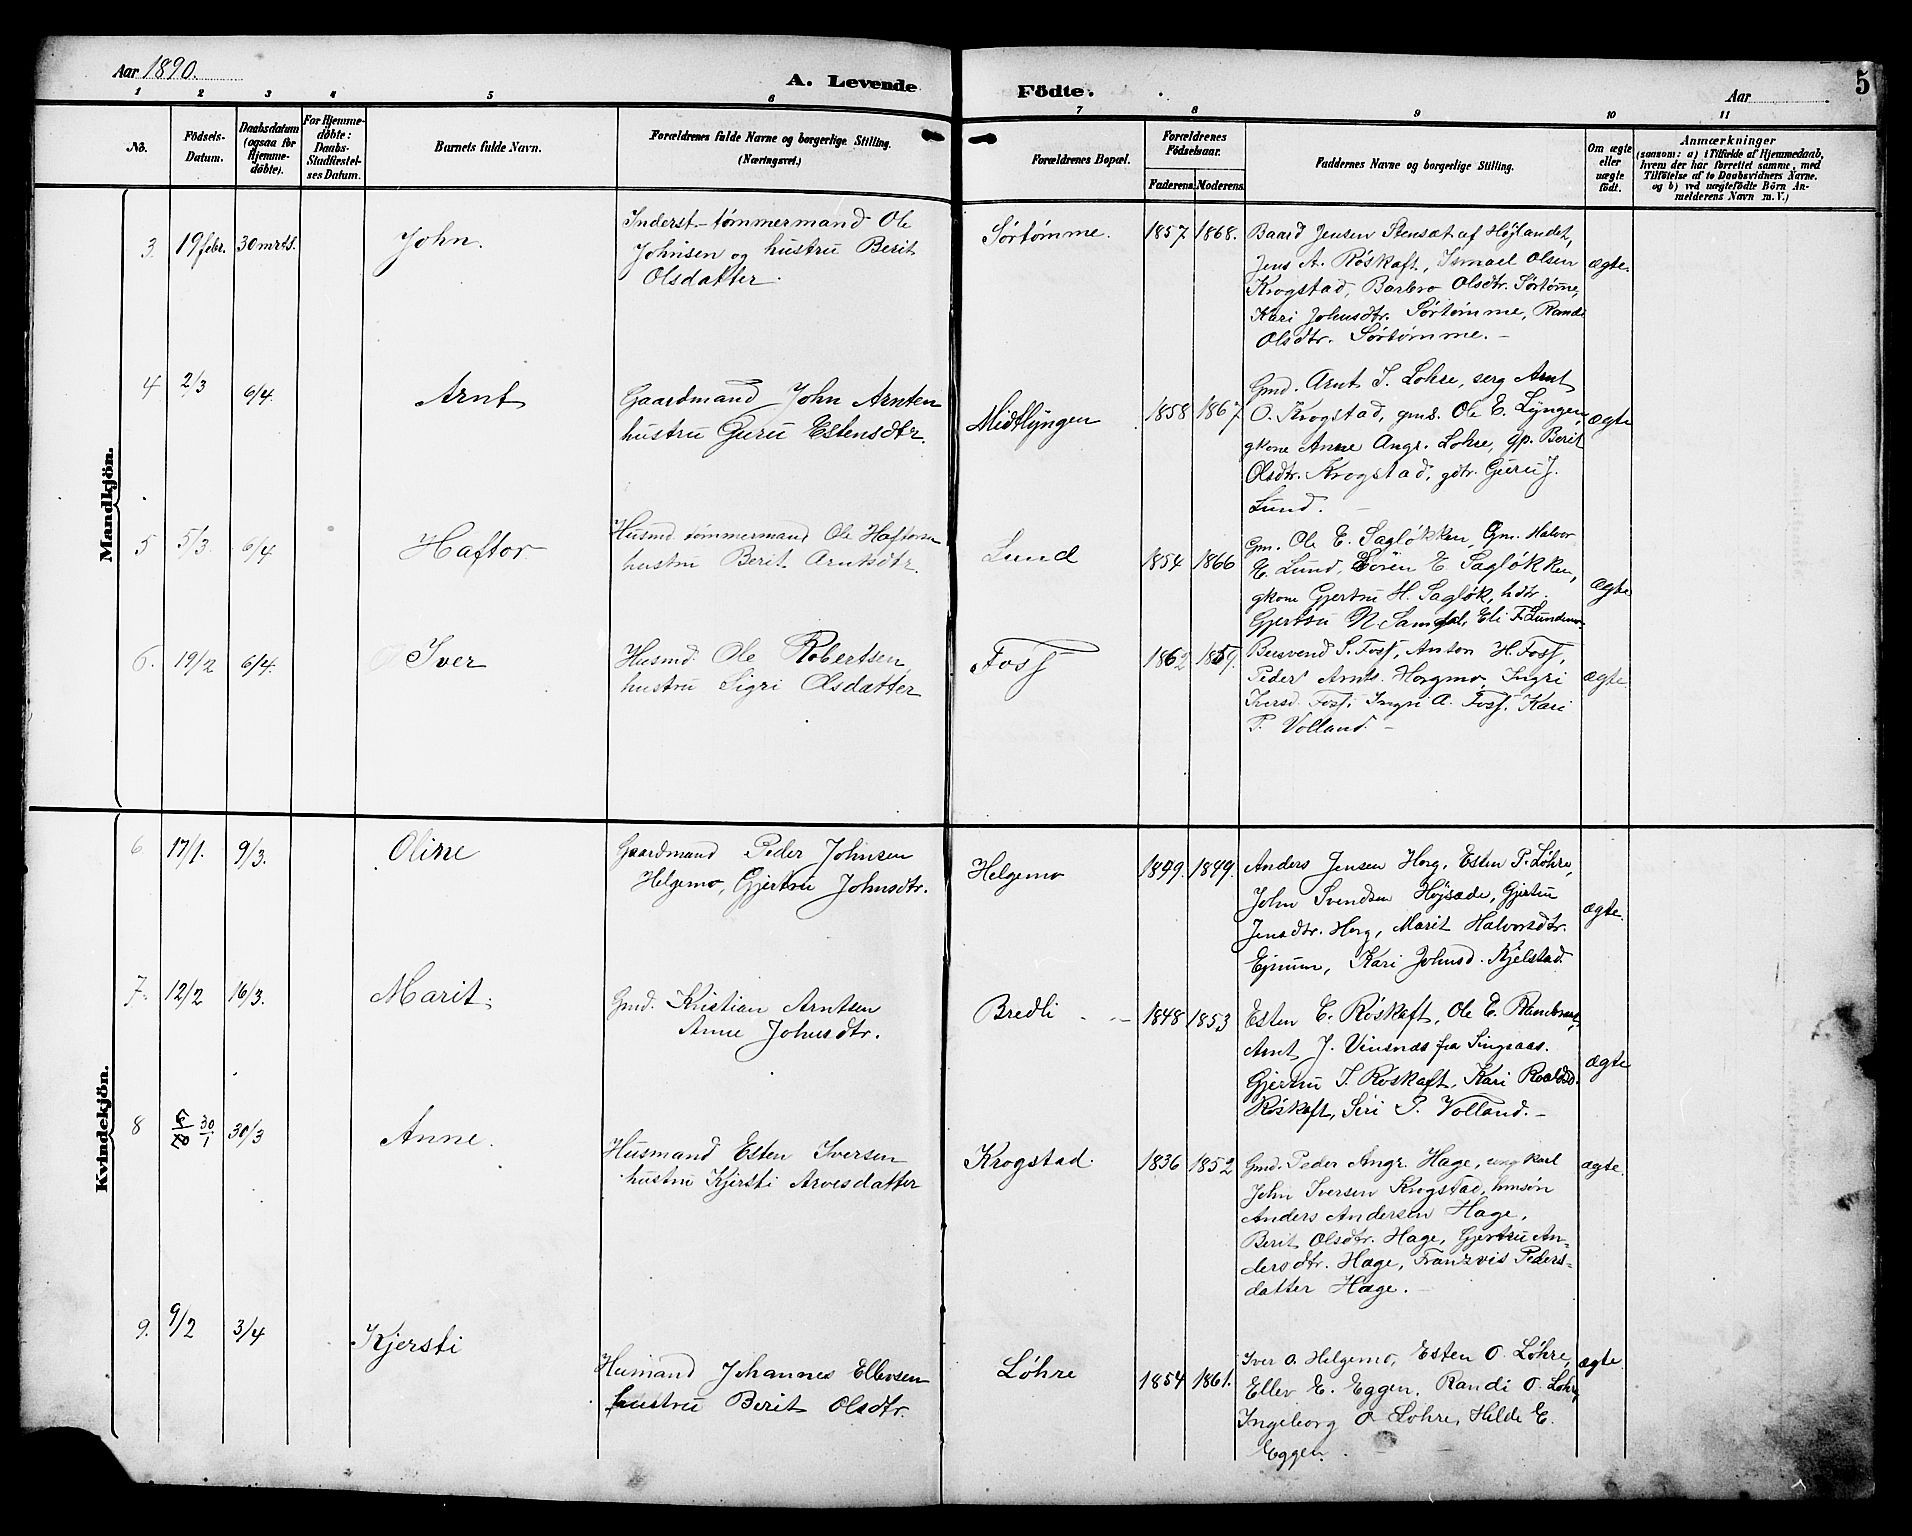 Aar 1890.
A. Levende Födte.
Aar
5
1 2 3 4 5 6 7 8 9 10 11
No.
Födsels-Datum.
Daabsdatum (ogsaa for Hjemme-döbte).
For Hjemme-döbte: Daabs-Stadfæstel-ses Datum.
Barnets fulde Navn.
Forældrenes fulde Navne og borgerlige Stilling. (Næringsvei.)
Forældrenes Bopæl.
Forældrenes Födselsaar.
Faderens. Moderens.
Faddernes Navne og borgerlige Stilling.
Om ægte eller uægte födt.
Anmærkninger
(saasom: a) i Tilfælde af Hjemmedaab,
hvem der har forrettet samme, med
Tilföielse af to Daabsvidners Navne.
og b) ved uægtefödte Börn An-
melderens Navn m. V.)
Mandkjön.
3. 19 febr. 30 mrts. John.
Inderst-tømmermand Ole
Johnsen og hustru Berit
Olsdatter.
Sørtømme. 1857 1868.
Baard Jensen Stensæt af Højlandet,
Jens A. Röskaft, Ismael Olsen
Krogstad, Barbro Olsdtr. Sørtømme,
Kari Johnsdtr. Sørtømme, Randi
Olsdtr. Sørtømme. –
ægte.
4 2/3 6/4. Arnt
Gaardmand John Arnten
hustru Guru Estensdtr.
Midtlyngen 1858 1867.
Gmd. Arnt I. Lohre, serg Arnt
O. Krogstad, gms. Ole E. Lyngen,
gkone Anne Angr. Lohre, gp. Berit
Olsdtr. Krogstad, gdtr. Guru J.
Lund. –
ægte
5 5/3. 6/4 Haftor
Husmd. tømmermand Ole Haftorsn
hustru Berit Arntsdtr.
Lund 1854 1866
Gm. Ole E. Sagløkken, Gm. Halvor
E. Lund, Sören E Sagløkken,
gkone Gjertru H. Sagløk, hdtr.
Gjertru N Eli F. Lundemo
ægte
6. 19/2 6/4. Iver
Husmd. Ole Robertsen,
hustru Sigri Olsdatter
Foss 1862
P. Foss, Anton H. Foss,
Peder Arnts. Horgmo, Ingri
Iversd. Foss, Ingri A. Foss, Kari
P. Volland. –
ægte.
Kvindekjön.
6 17/1. 9/3. Oline
Gaardmand Peder Johnsen
Helgemo, Gjertru Johnsdtr.
Helgemo 1849. 1849.
Anders Jensen Horg, Esten P. Löhre,
John Svendsen Højsæde, Gjertru
Jensdtr. Horg, Marit Halvorsdtr.
Kari Johnsd. Kjelstad.
ægte.
7. 12/2 16/3. Marit.
Gmd. Kristian Arntsen
Anne Johnsdtr.
Bredli 1848 1853
Esten E. Röskaft, Ole E.
Arnt J. Vinsnæs fra Singsaas.
Gjertru I. Röskaft, Kari
Röskaft, Siri P. Volland. –
ægte
8 30/1 30/3 Anne.
Husmand Esten Iversen
hustru Kjersti Arvesdatter
Krogstad. 1836 1852
Gmd. Peder Angr. Hage, ungkarl
John Iversen Krogstad,
Anders Andersen Hage,
Berit Olsdtr. Hage, Gjertru An-
dersdtr. Hage, Franzvis Peders-
datter Hage. –
ægte.
9. 9/2 3/4 Kjersti
Husmand Johannes Ellevsen
hustru Berit Olsdtr.
Löhre 1854 1861.
Iver O. Helgemo, Esten O. Löhre,
Ellev E. Eggen, Randi O. Löhre,
Ingeborg O Löhre, Hilde E.
Eggen.
ægte.